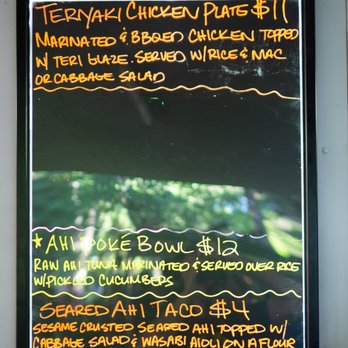 TERIYAKI CHICKEN PLATE $11
MARINATED & BBQED CHICKEN TOPPED
W/ TERI GLAZE. SERVED W/RICE & MAC
OR CABBAGE SALAD
★ AHI POKE BOWL $12
RAW AHI TUNA MARINATED & SERVED OVER RICE
W/PICKLED CUCUMBERS
SEARED AHI TACO $4
SESAME CRUSTED SEARED AHI TOPPED W/
CABBAGE SALAD & WASABI AIOLI ON A FLOUR